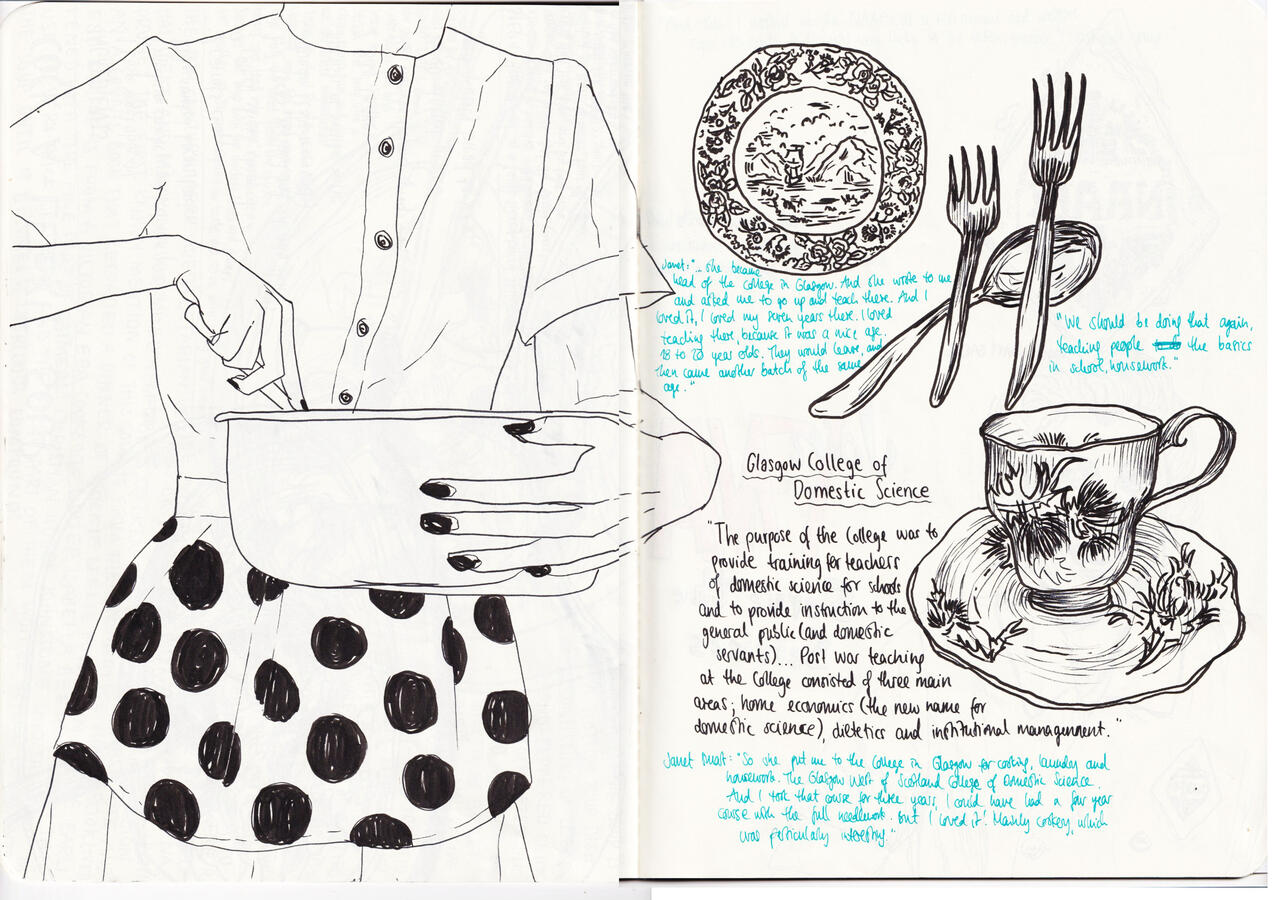 Janet: "... she became
head of the college in Glasgow. And she wrote to me
and asked me to go up and teach there. And I
loved it, I loved my seven years there. I loved
teaching there, because it was a nice age.
18 to 20 year olds. They would leave, and
then came another batch of the same
age."
"We should be doing that again,
teaching people the basics
in school, housework."
Glasgow College of
Domestic Science
"The purpose of the College was to
provide training for teachers
of domestic science for schools
and to provide instruction to the
general public (and domestic
servants)... Post war teaching
at the College consisted of three main
areas; home economics (the new name for
domestic science), dietetics and institutional management."
Janet : "So she put me to the College in Glasgow for cooking, laundry and
housework. The Glasgow West of Scotland College of Domestic Science.
And I took that course for three years, I could have had a four year
course with the full needlework. But I loved it! Mainly cookery, which
was particularly interesting."